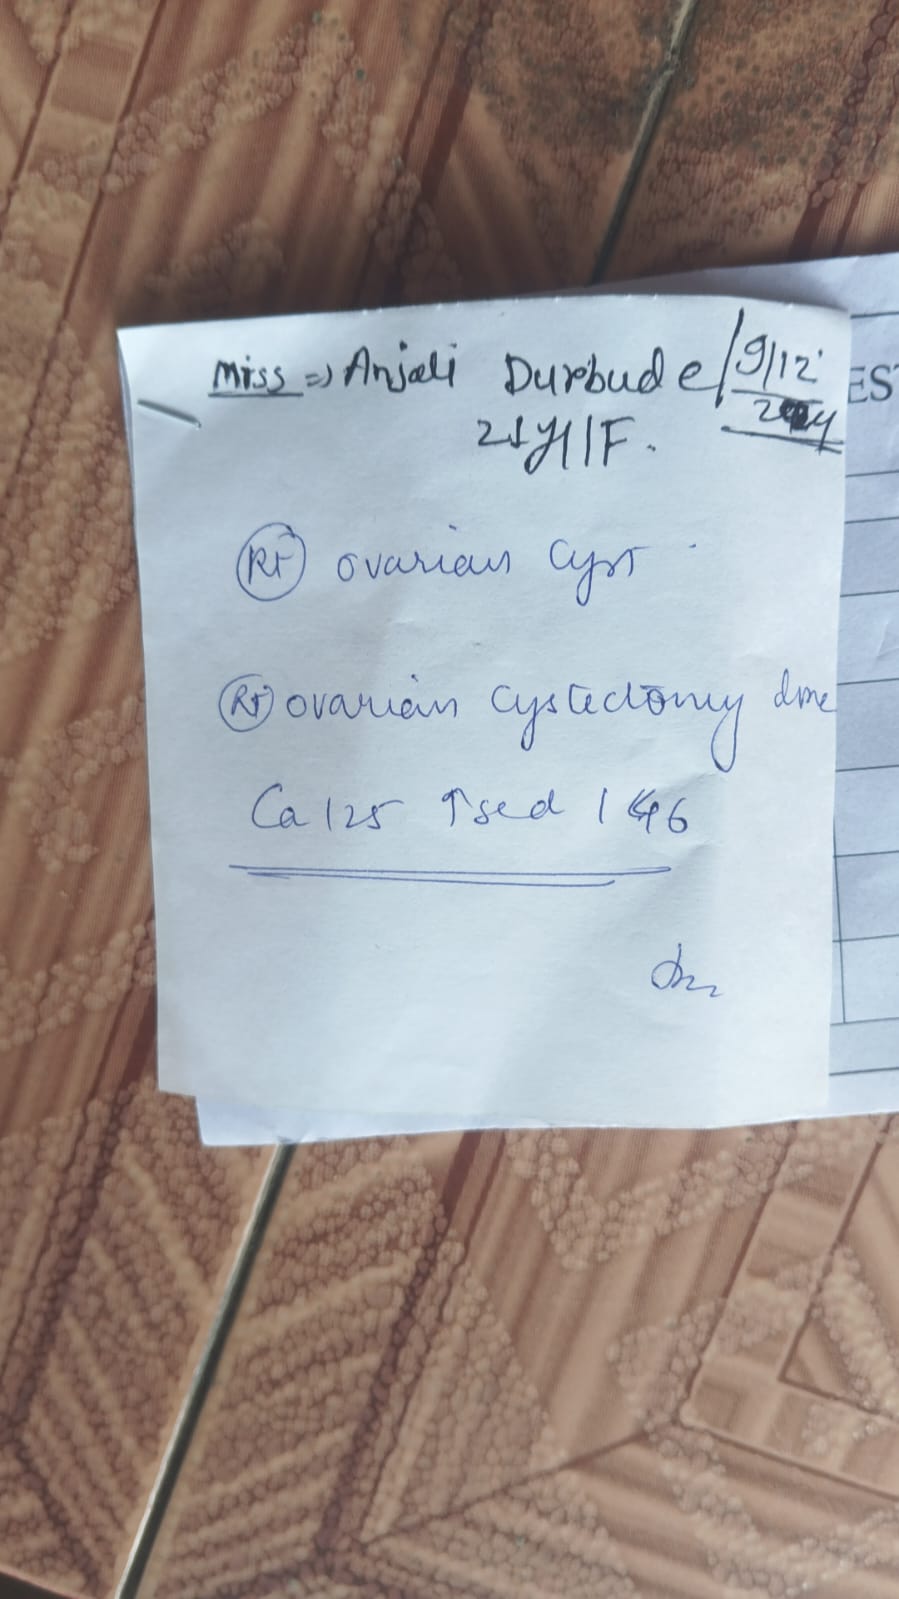 Miss => Anjali Durbude / 9/12
2024
21y//F.
ES
Rt ovarian cyst
Rt ovarian cystectomy done
Ca 125 ↑sed 146